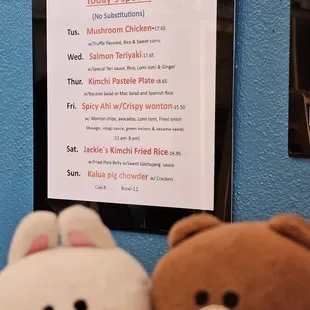 Today's Special
(No Substitutions)
Tus. Mushroom Chicken-17.65
w/Truffle Flavored, Rice & Sweet corns
Wed. Salmon Teriyaki-17.65
w/Special Teri sauce, Rice, Lomi Lomi & Ginger
Thur. Kimchi Pastele Plate-18.65
w/Bacalao Salad or Mac Salad and Spanish Rice
Fri. Spicy Ahi w/Crispy wonton-15.50
w/ Wonton chips, avocados, Lomi lomi, Fried onion
Masago, Unagi sauce, green onions & sesame seeds
(11 am- 8 pm)
Sat. Jackie's Kimchi Fried Rice-16.95
w/Fried Pork Belly w/Sweet Gochujang sauce
Sun. Kalua pig chowder w/ Crackers
Cup-8 Bowl-11